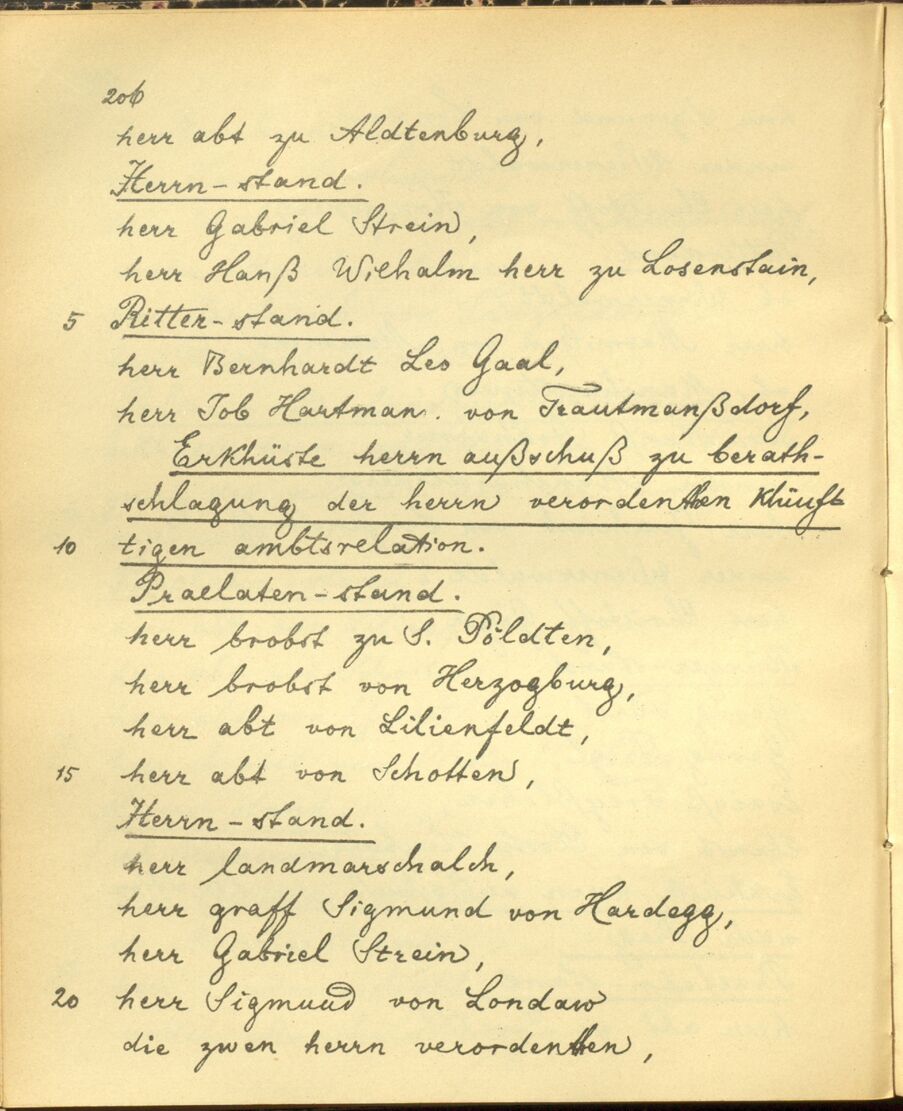 206
herr abt zu Aldtenburg,
Herrn-stand.
herr Gabriel Strein,
herr Hanß Wilhalm herr zu Losenstain,
5 Ritter-stand.
herr Bernhardt Leo Gaal,
herr Job Hartman. von Trautmanßdorf,
Erkhüste herrn außschuß zu berath-
schlagung der herrn verordenten khüuft
10 tigen ambtsrelation.
Praelaten-stand.
herr brobst zu S. Pöldten,
herr brobst von Herzogburg,
herr abt von Lilienfeldt,
15 herr abt von Schotten,
Herrn-stand.
herr landmarschalch,
herr graff Sigmund von Hardegg,
herr Gabriel Strein,
20 herr Sigmuud von Londaw
die zwen herrn verordenten,